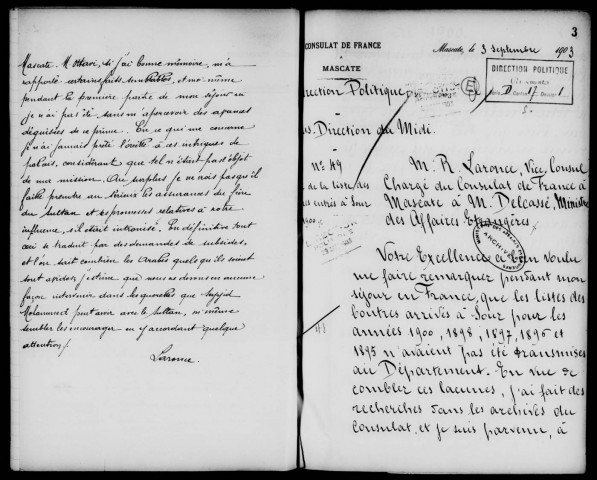 Mascate. M. Ottavi, si j'ai bonne mémoire, m'a
rapporté certains faits semblables, et moi-même
pendant la première partie de mon séjour ici
je n'ai pas été sans m'apercevoir des avances
déguisées de ce prince. En ce qui me concerne
je n'ai jamais prêté l'oreille à ces intrigues de
palais, considérant que tel n'était pas l'objet
de ma mission. Au surplus je ne crois pas qu'il
faille prendre au sérieux les assurances du frère
du Sultan et ses promesses relatives à notre
influence, s'il était intronisé. En définitive tout
ceci se traduit par des demandes de subsides,
et l'on sait combien les Arabes quels qu'ils soient
sont avides; j'estime que nous ne devons en aucune
façon intervenir dans les querelles que Seyyid
Mohammed peut avoir avec le Sultan, ni même
sembler les encourager en y accordant quelque
attention /.
Laronce.
3
CONSULAT DE FRANCE
À
MASCATE
Mascate, le 3 Septembre 1903
DIRECTION POLITIQUE
D Carton 17 Dossier 1
5.
Direction Politique
Direction du Midi.
N° 49
de la liste des
entrés à Sour
1900
M. R. Laronce, Vice Consul
Chargé du Consulat de France à
Mascate à M. Delcassé, Ministre
des Affaires Etrangères /.
ARCHIVES
Votre Excellence a bien voulu
me faire remarquer pendant mon
séjour en France, que les listes des
boutres arrivés à Sour pour les
années 1900, 1898, 1897, 1896 et
1895 n'avaient pas été transmises
au Département. En vue de
combler ces lacunes, j'ai fait des
recherches dans les archives du
Consulat, et je suis parvenu, à